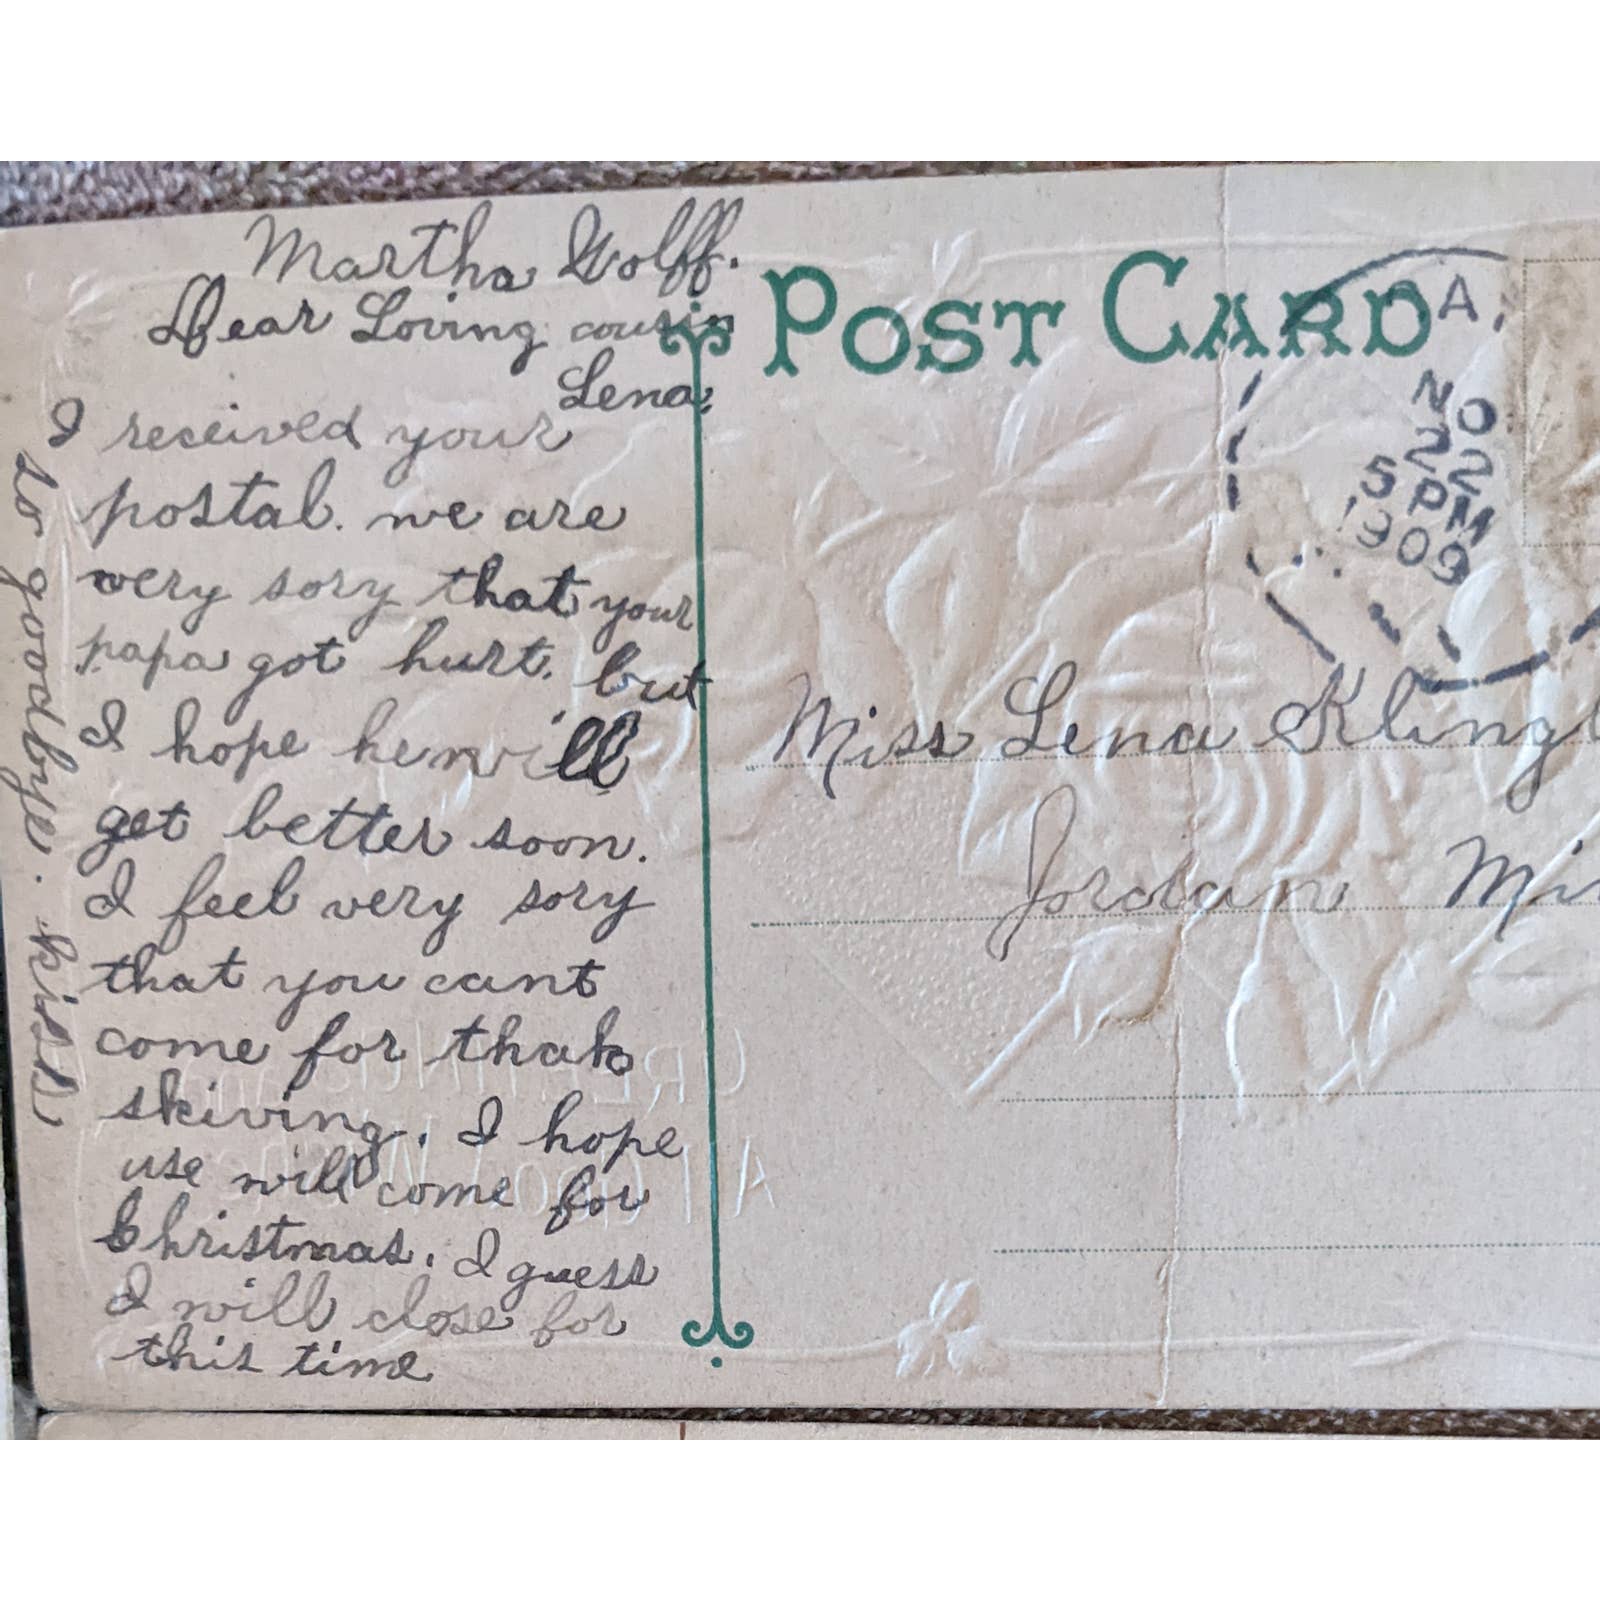 Martha Wolff.
Dear Loving cousin
Lena,
I received your
postal. we are
very sory that your
papa got hurt. but
I hope he will
get better soon.
I feel very sory
that you cant
come for thak
skiving. I hope
use will come for
Christmas. I guess
I will close for
this time
so goodbye. kisses
POST CARD
A.
NO
22
5 PM
1909
Miss Lena Klingl
Jordan Min
GREETINGS